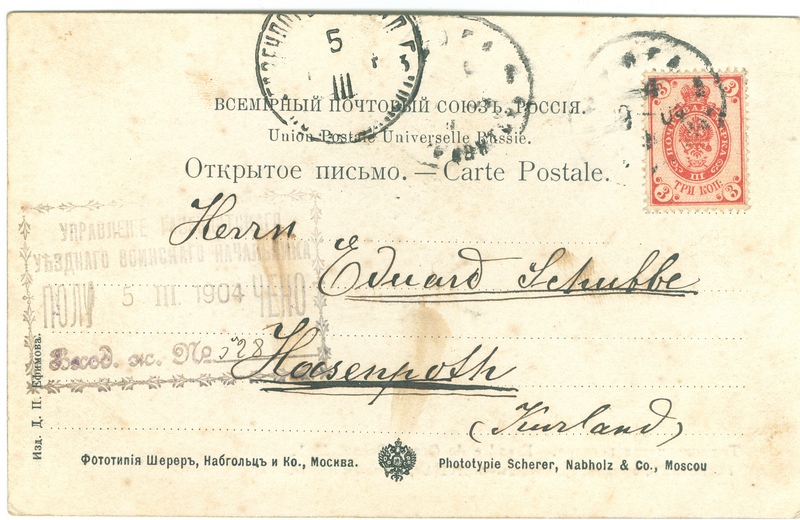 5
III
ВСЕМІРНЫЙ ПОЧТОВЫЙ СОЮЗЪ. РОССІЯ.
Union Postale Universelle Russie.
Открытое письмо. — Carte Postale.
3 3
МАРКА
III
ТРИ КОП.
3 3
Herrn
УПРАВЛЕНІЕ
УѢЗДНАГО ВОИНСКАГО НАЧАЛЬНИКА
ПОЛУ 5 III. 1904 ЧЕНО
Вход. ж. № 328
Eduard Schubbe
Hasenpoth
(Kurland)
Изд. Д. П. Ефимова.
Фототипія Шереръ, Набгольцъ и Ко., Москва.
Phototypie Scherer, Nabholz & Co., Moscou